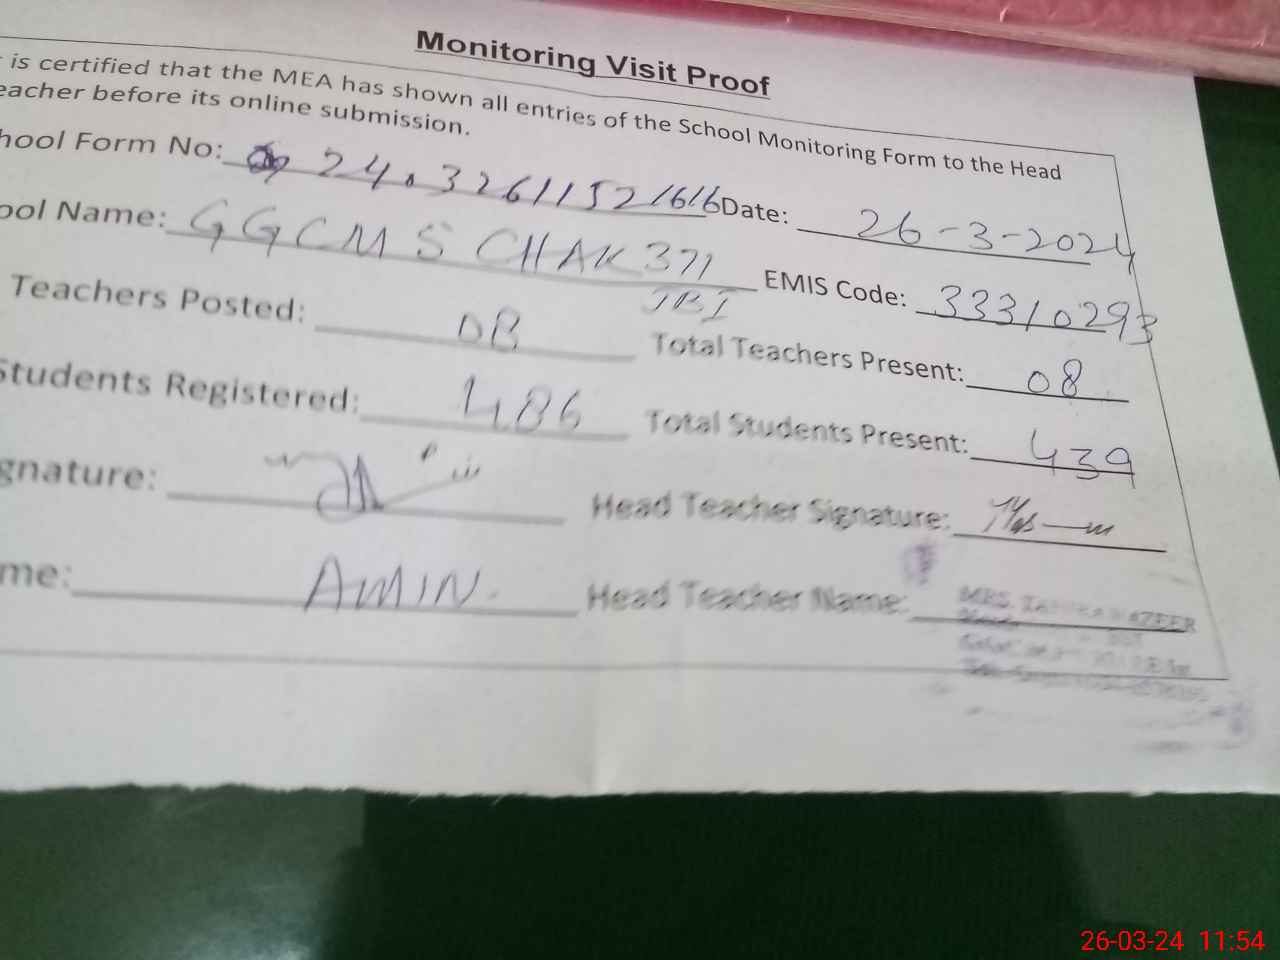 Monitoring Visit Proof
is certified that the MEA has shown all entries of the School Monitoring Form to the Head
eacher before its online submission.
hool Form No: 24.32611521616 Date: 26-3-2024
ool Name: GGCMS CHAK 371 EMIS Code: 33310293
JBI
Teachers Posted: 08 Total Teachers Present: 08
Students Registered: 486 Total Students Present: 439
gnature: Head Teacher Signature:
me: AMIN. Head Teacher Name: MRS.
26-03-24 11:54